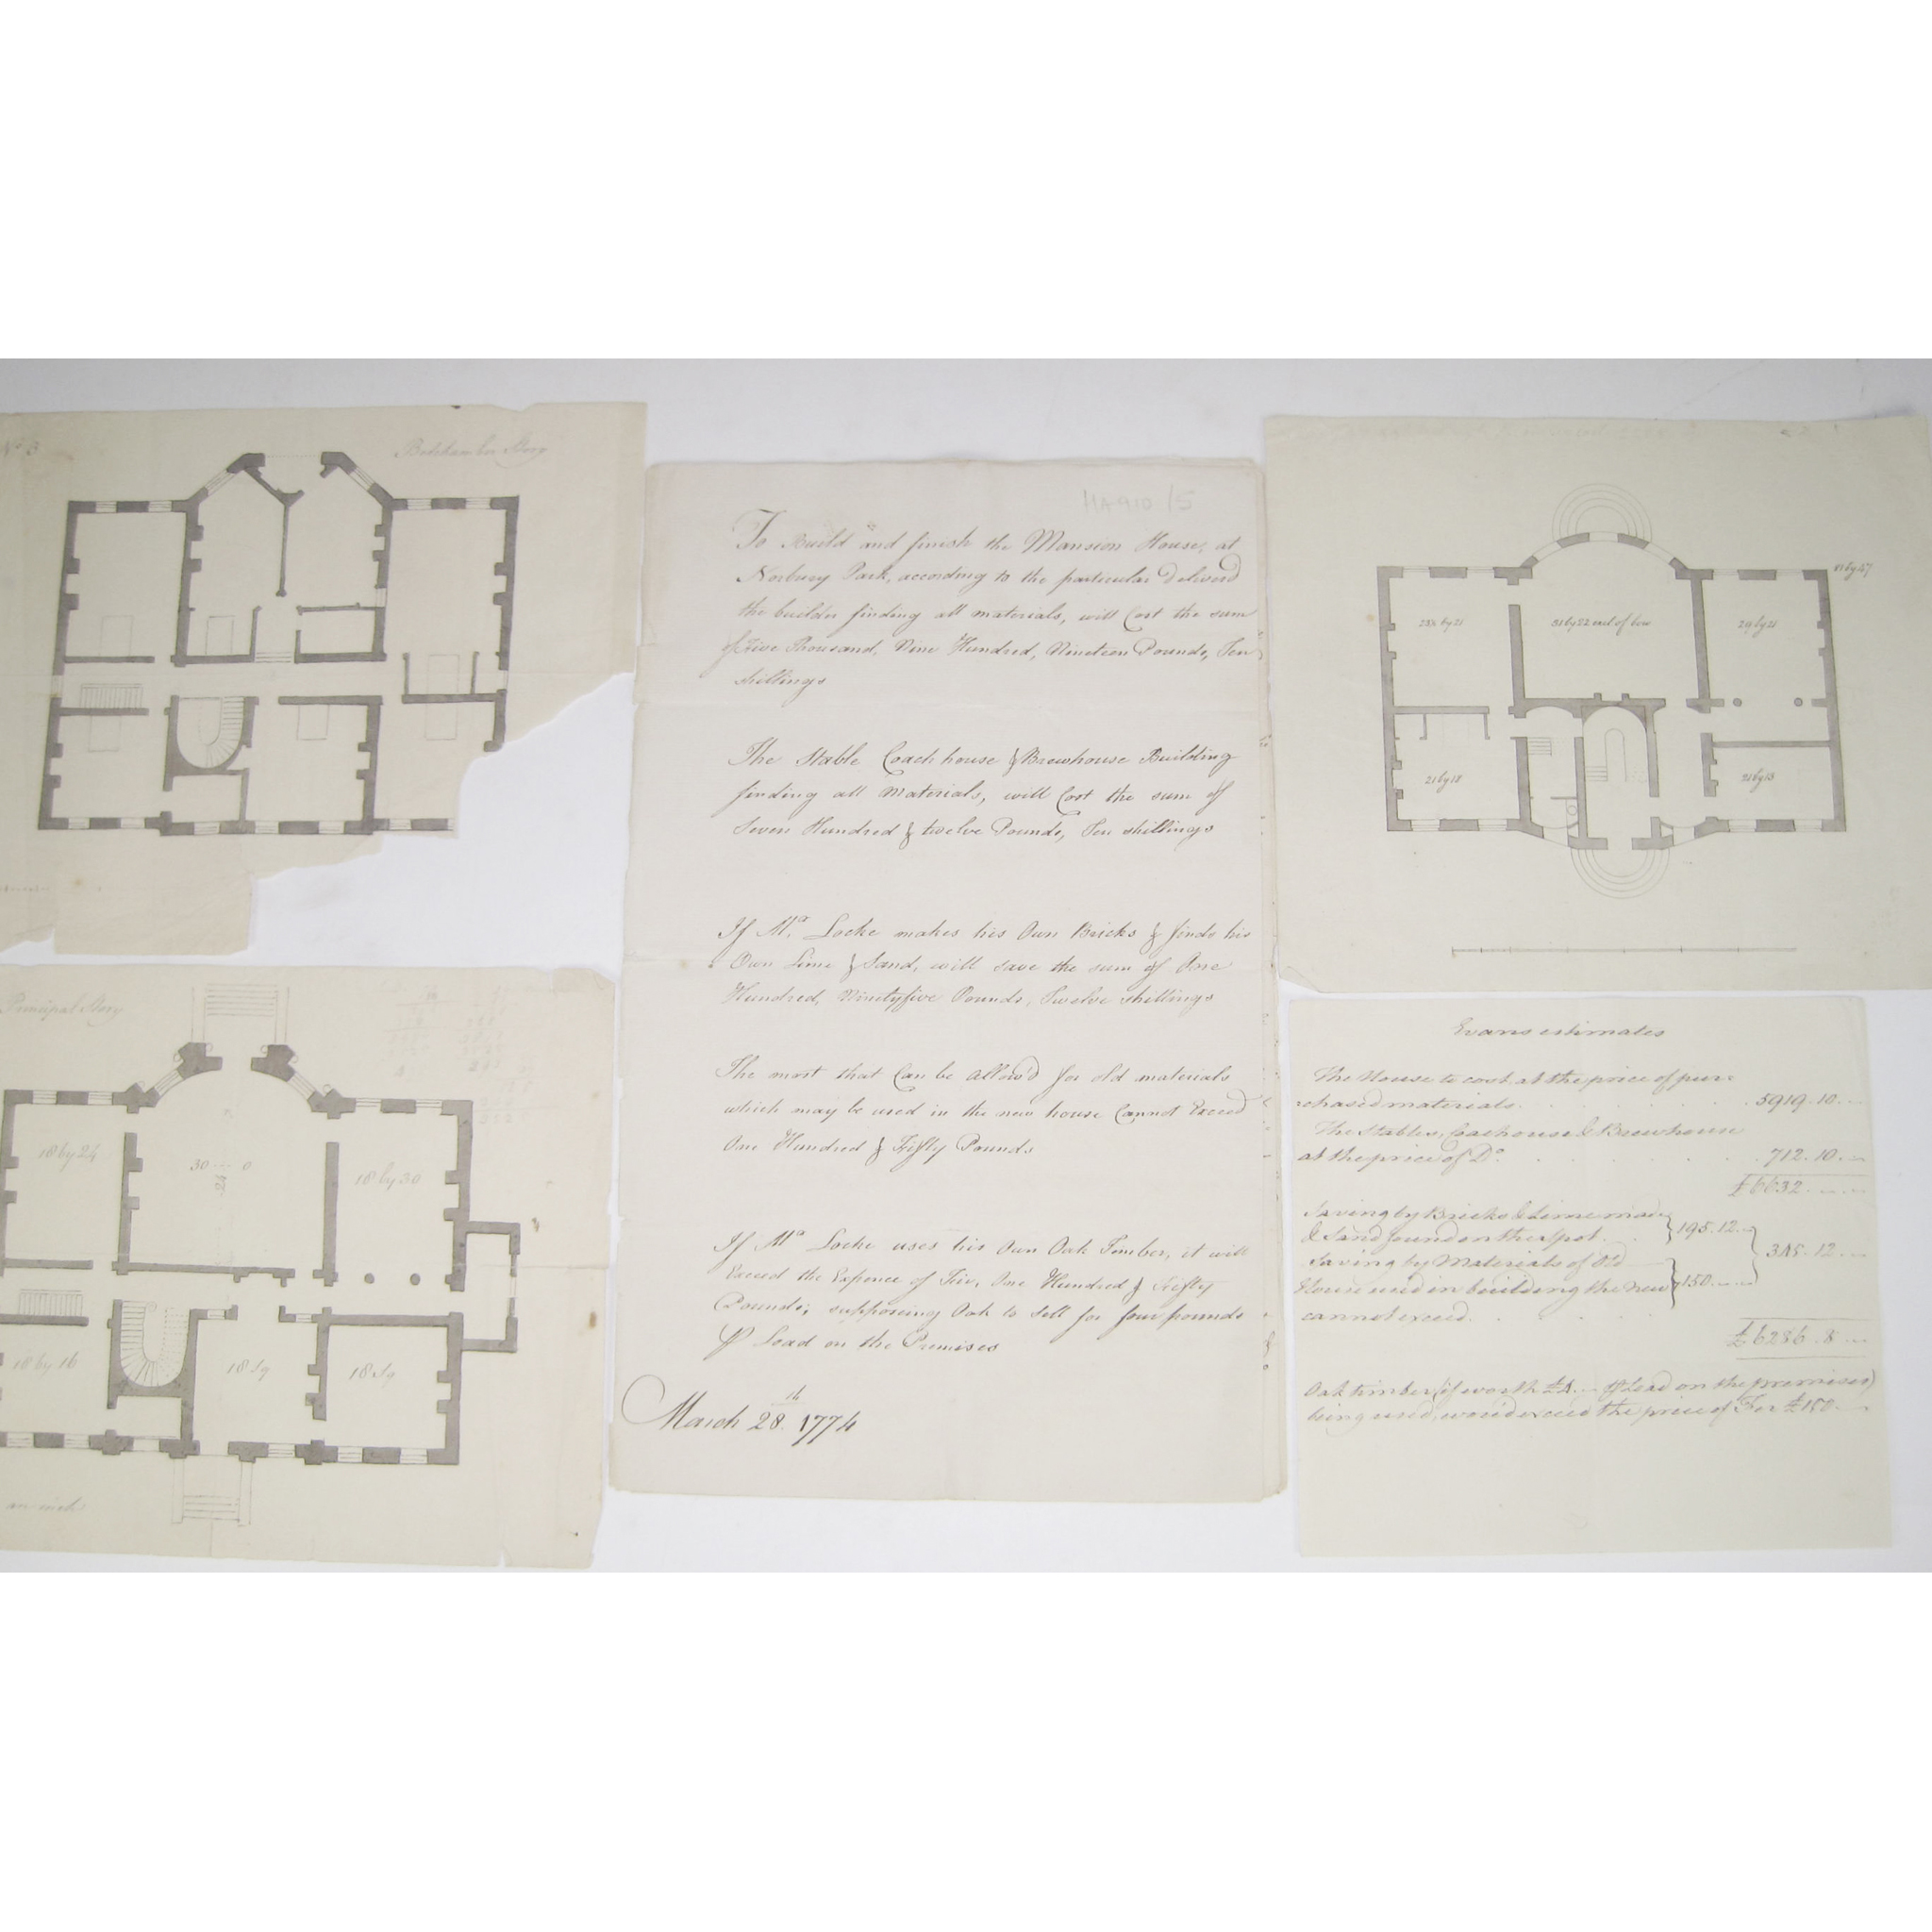 No 3
Bedchamber Story
HA 910 /5
To Build and finish the Mansion House, at
Norbury Park, according to the particular Deliverd
the builder finding all materials, will Cost the sum
of Five Thousand, Nine Hundred, Nineteen Pounds, Ten
shillings
The Stable Coach house & Brewhouse Building
finding all Materials, will Cost the sum of
Seven Hundred & twelve Pounds, Ten shillings
If Mr. Locke makes his Own Bricks & finds his
Own Lime & Sand, will save the sum of One
Hundred, Ninetyfive Pounds, Twelve shillings
The most that Can be Allow'd for old materials
which may be used in the new house Cannot Exceed
One Hundred & Fifty Pounds
If Mr Locke uses his Own Oak Timber, it will
Exceed the Expence of Firr, One Hundred & Fifty
Pounds; supposing Oak to sell for four pounds
P Load on the Premises
March 28th. 1774
28½ by 21
31 by 22 excl. of bow
29 by 21
by 47
21 by 18
21 by 13
Principal Story
18 by 24
30 0
24
18 by 30
18 by 16
18 Sq
18 Sq
an inch
Evans estimates
The House to cost at the price of pur=
=chased materials. 5919.10.
The Stables, Coachouse & Brewhouse
at the price of Do. 712.10.
£6632.
Saving by Bricks & Lime made
& Sand found on the Spot. } 195.12. } 345.12
Saving by Materials of Old
House used in building the new } 150.
cannot exceed.
£6286.8
Oak timber (if worth £4. P Load on the premises)
being used, would exceed the price of Fir £150.